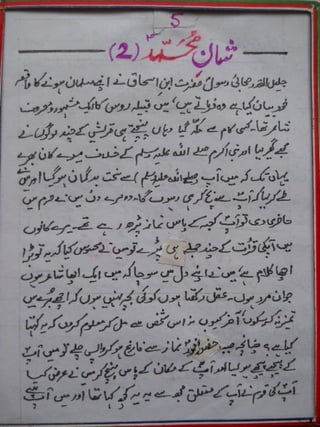 5
شانِ محمدؐ (2)
جلیل القدر صحابی رسولؐ حضرت ابن اسحاق نے اپنے مسلمان ہونے کا واقعہ
خود بیان کیا ہے وہ فرماتے ہیں، میں قبیلہ دوسی کا ایک مشہور و معروف
شاعر تھا۔ کسی کام سے مکہ گیا وہاں پہنچتے ہی قریش کے چند لوگوں نے
مجھے گھیر لیا اور نبی اکرم صلی اللہ علیہ وسلم کے خلاف میرے کان بھرے
یہاں تک کہ میں آپ (صلی اللہ علیہ وسلم) سے سخت بدگمان ہو گیا اور میں نے
طے کر لیا کہ آپ سے بچ کر ہی رہوں گا۔ دوسرے دن میں نے حرم میں
حاضری دی تو آپ کعبہ کے پاس نماز پڑھ رہے تھے۔ میرے کانوں
میں آپکی قرأت کے چند جملے ہی پڑے تو میں نے محسوس کیا کہ یہ تو بڑا
اچھا کلام ہے میں نے اپنے دل میں سوچا کہ میں ایک اچھا شاعر ہوں
جوان مرد ہوں۔ عقل رکھتا ہوں کوئی بچہ نہیں ہوں کہ اچھے برے میں
تمیز نہ کر سکوں۔ آخر کیوں نہ اس شخص سے مل کر معلوم کروں کہ یہ کہتا
کیا ہے؟ چنانچہ جب حضورؐ نماز سے فارغ ہو کر واپس چلے تو میں آپ
کے پیچھے پیچھے ہو لیا اور آپ کے مکان کے پاس پہنچ کر میں نے عرض کیا
آپ کی قوم نے آپ کے متعلق مجھ سے یہ یہ کچھ کہا تھا اور میں آپ سے